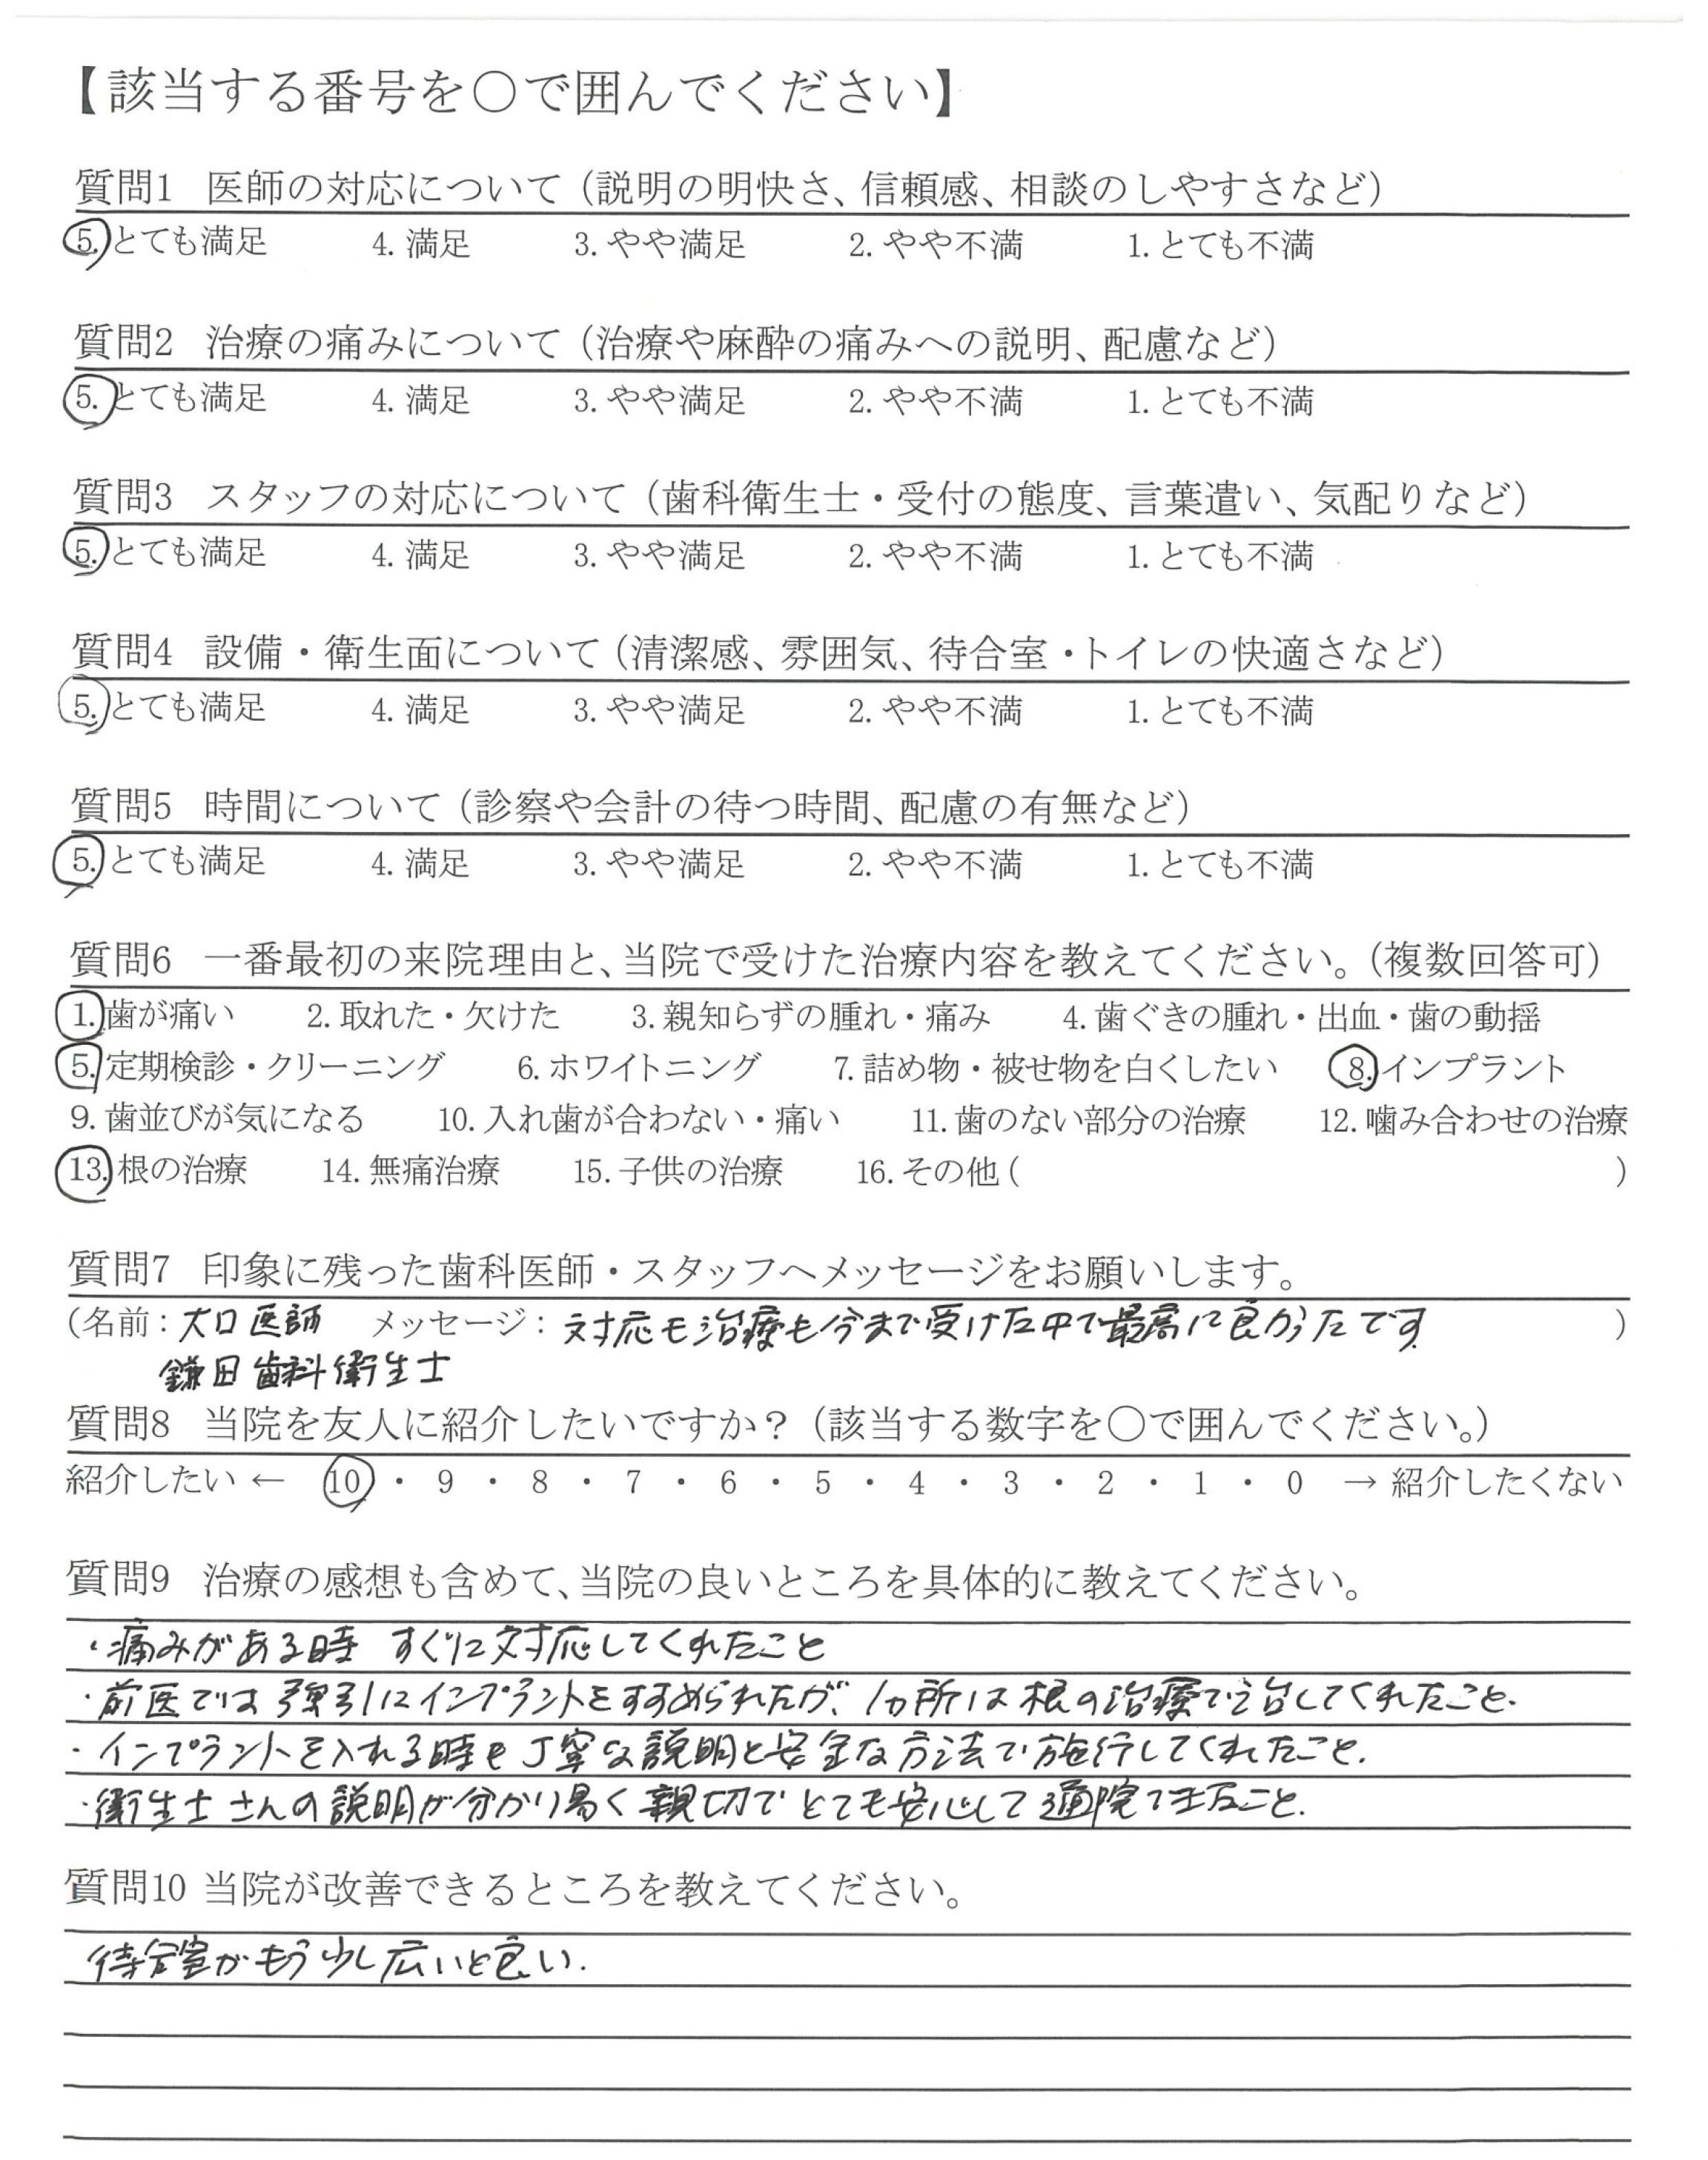 【該当する番号を〇で囲んでください】
質問1 医師の対応について（説明の明快さ、信頼感、相談のしやすさなど）
5. とても満足 4. 満足 3. やや満足 2. やや不満 1. とても不満
質問2 治療の痛みについて（治療や麻酔の痛みへの説明、配慮など）
5. とても満足 4. 満足 3. やや満足 2. やや不満 1. とても不満
質問3 スタッフの対応について（歯科衛生士・受付の態度、言葉遣い、気配りなど）
5. とても満足 4. 満足 3. やや満足 2. やや不満 1. とても不満
質問4 設備・衛生面について（清潔感、雰囲気、待合室・トイレの快適さなど）
5. とても満足 4. 満足 3. やや満足 2. やや不満 1. とても不満
質問5 時間について（診察や会計の待つ時間、配慮の有無など）
5. とても満足 4. 満足 3. やや満足 2. やや不満 1. とても不満
質問6 一番最初の来院理由と、当院で受けた治療内容を教えてください。（複数回答可）
1. 歯が痛い 2. 取れた・欠けた 3. 親知らずの腫れ・痛み 4. 歯ぐきの腫れ・出血・歯の動揺
5. 定期検診・クリーニング 6. ホワイトニング 7. 詰め物・被せ物を白くしたい 8. インプラント
9. 歯並びが気になる 10. 入れ歯が合わない・痛い 11. 歯のない部分の治療 12. 噛み合わせの治療
13. 根の治療 14. 無痛治療 15. 子供の治療 16. その他（ ）
質問7 印象に残った歯科医師・スタッフへメッセージをお願いします。
（名前：大口医師 メッセージ：対応も治療も今まで受けた中で最高に良かったです ）
鎌田歯科衛生士
質問8 当院を友人に紹介したいですか？（該当する数字を〇で囲んでください。）
紹介したい ← 10 ・ 9 ・ 8 ・ 7 ・ 6 ・ 5 ・ 4 ・ 3 ・ 2 ・ 1 ・ 0 → 紹介したくない
質問9 治療の感想も含めて、当院の良いところを具体的に教えてください。
・痛みがある時 すぐに対応してくれたこと
・前医では強引にインプラントをすすめられたが、1ヵ所は根の治療で治してくれたこと.
・インプラントを入れる時も丁寧な説明と安全な方法で施行してくれたこと.
・衛生士さんの説明が分かり易く親切でとても安心して通院できること.
質問10 当院が改善できるところを教えてください。
待合室がもう少し広いと良い.